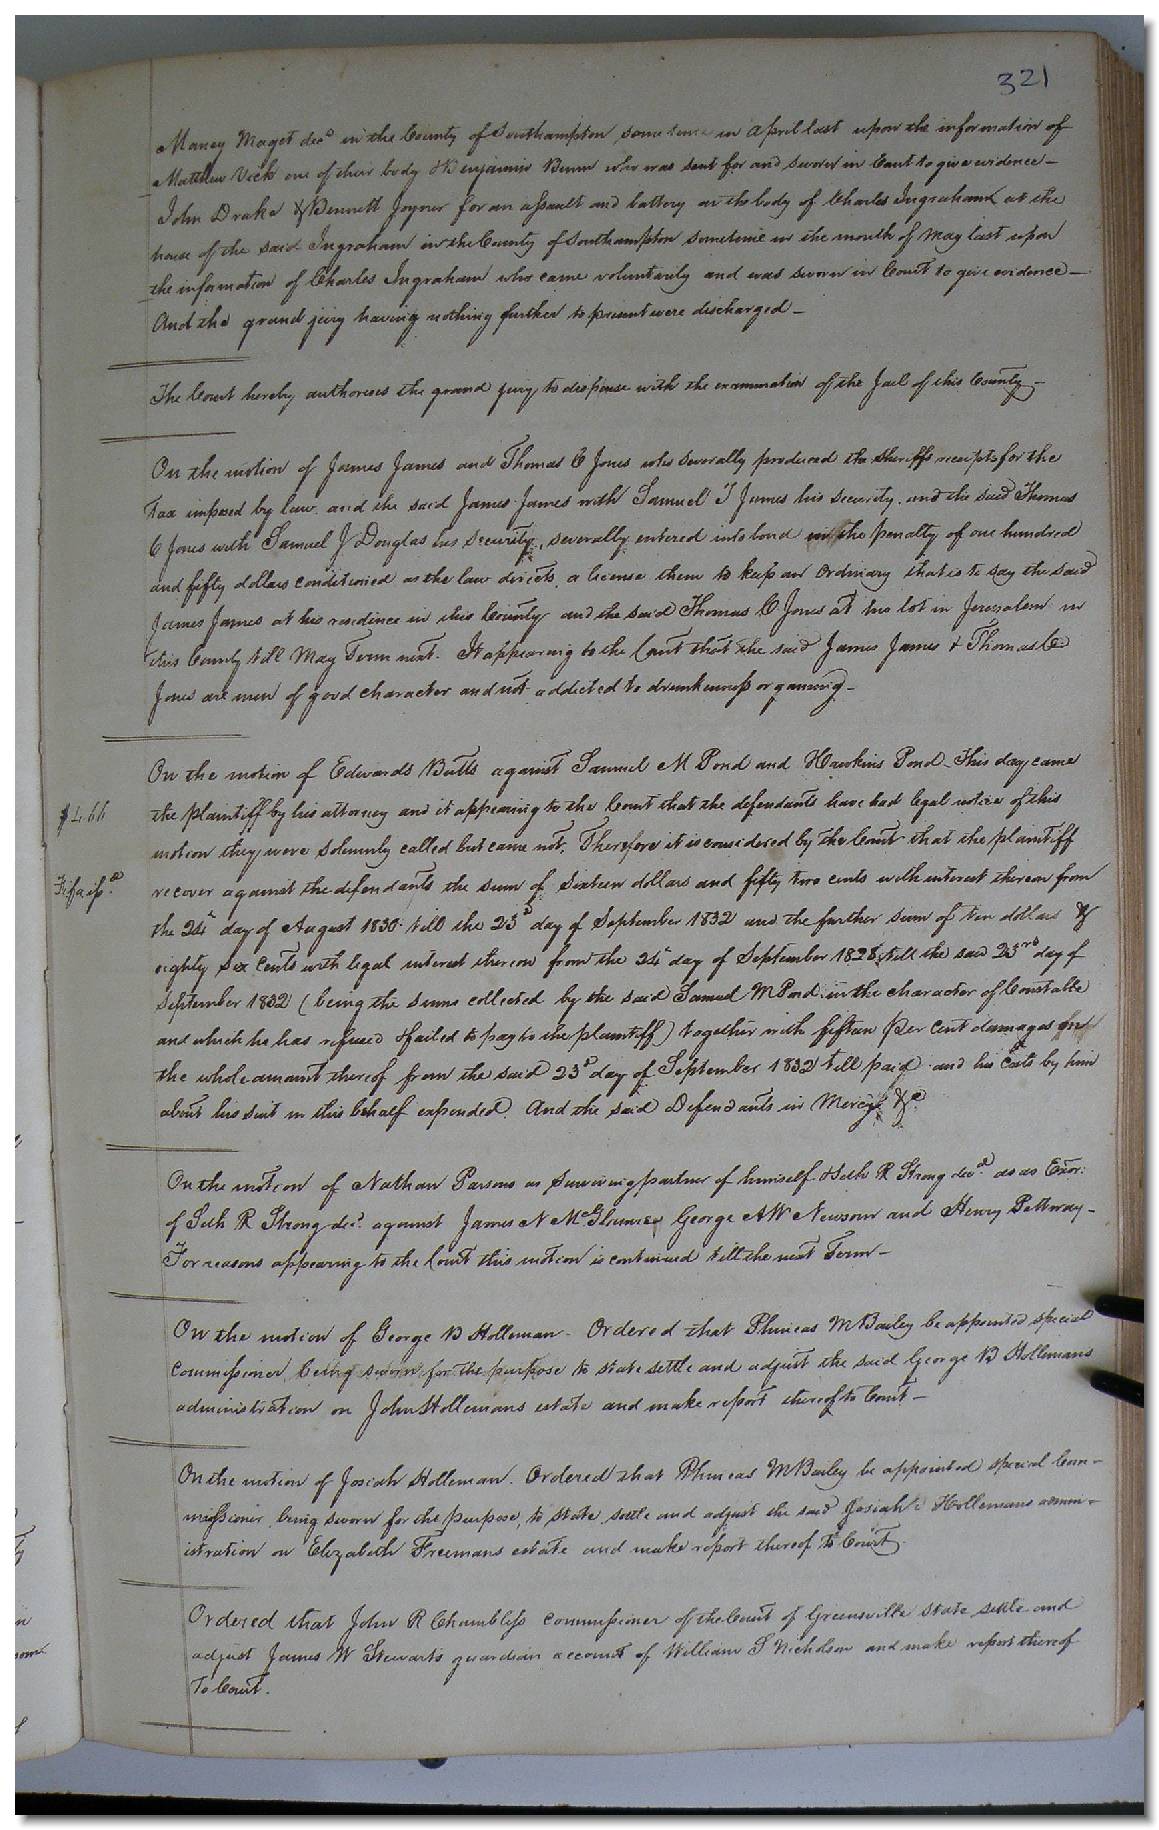 321
Maney Maget decd in the County of Southampton some time in April last upon the information of
Matthew Vick one of their body & Benjamin Bunn who was sent for and sworn in Court to give evidence —
John Drake & Bennett Joyner for an assault and battery on the body of Charles Ingraham at the
house of the said Ingraham in the County of Southampton sometime in the month of May last upon
the information of Charles Ingraham who came voluntarily and was sworn in Court to give evidence —
And the grand jury having nothing further to present were discharged —
The Court hereby authorises the grand jury to dispense with the examination of the Jail of this County —
On the motion of James James and Thomas C Jones who severally produced the sheriffs receipts for the
tax imposed by law and the said James James with Samuel T James his security, and the said Thomas
C Jones with Samuel J Douglas his security, severally entered into bond in the penalty of one hundred
and fifty dollars conditioned as the law directs, a license them to keep an ordinary that is to say the said
James James at his residence in this County and the said Thomas C Jones at his lot in Jerusalem in
this County till May Term next. It appearing to the Court that the said James James & Thomas C
Jones are men of good character and not addicted to drunkenness or gaming —
On the motion of Edwards Butts against Samuel M Pond and Hawkins Pond — This day came
$4.66 the plaintiff by his attorney and it appearing to the Court that the defendants have had legal notice of this
motion they were solemnly called but came not. Therefore it is considered by the Court that the plaintiff
Fi fa isd recover against the defendants the sum of sixteen dollars and fifty two cents with interest thereon from
the 24th day of August 1830 till the 23d day of September 1832 and the further sum of ten dollars &
eighty six cents with legal interest thereon from the 24th day of September 1828 till the said 23rd day of
September 1832 (being the sums collected by the said Samuel M Pond in the character of Constable
and which he has refused & failed to pay to the plaintiff) together with fifteen per cent damages
the whole amount thereof from the said 23d day of September 1832 till paid and his costs by him
about his suit in this behalf expended. And the said Defendants in Mercy &c
On the motion of Nathan Parsons as Surviving partner of himself & Seth R Strong decd as as Exor:
of Seth R Strong decd against James N George AW Newsom and Henry Pettway —
For reasons appearing to the Court this motion is continued till the next Term —
On the motion of George B Holleman — Ordered that Phineas M Bailey be appointed special
commissioner, being sworn for the purpose to state settle and adjust the said George B Hollemans
administration on John Hollemans estate and make report thereof to Court —
On the motion of Josiah Holleman. Ordered that Phineas M Bailey be appointed special Com-
missioner being sworn for the purpose, to state settle and adjust the said Josiah Hollemans admin-
istration on Elizabeth Freemans estate and make report thereof to Court.
Ordered that John R Chambliss commissioner of the Court of Greensville state settle and
adjust James W Stewarts guardian account of William S Nicholson and make report thereof
To Court.